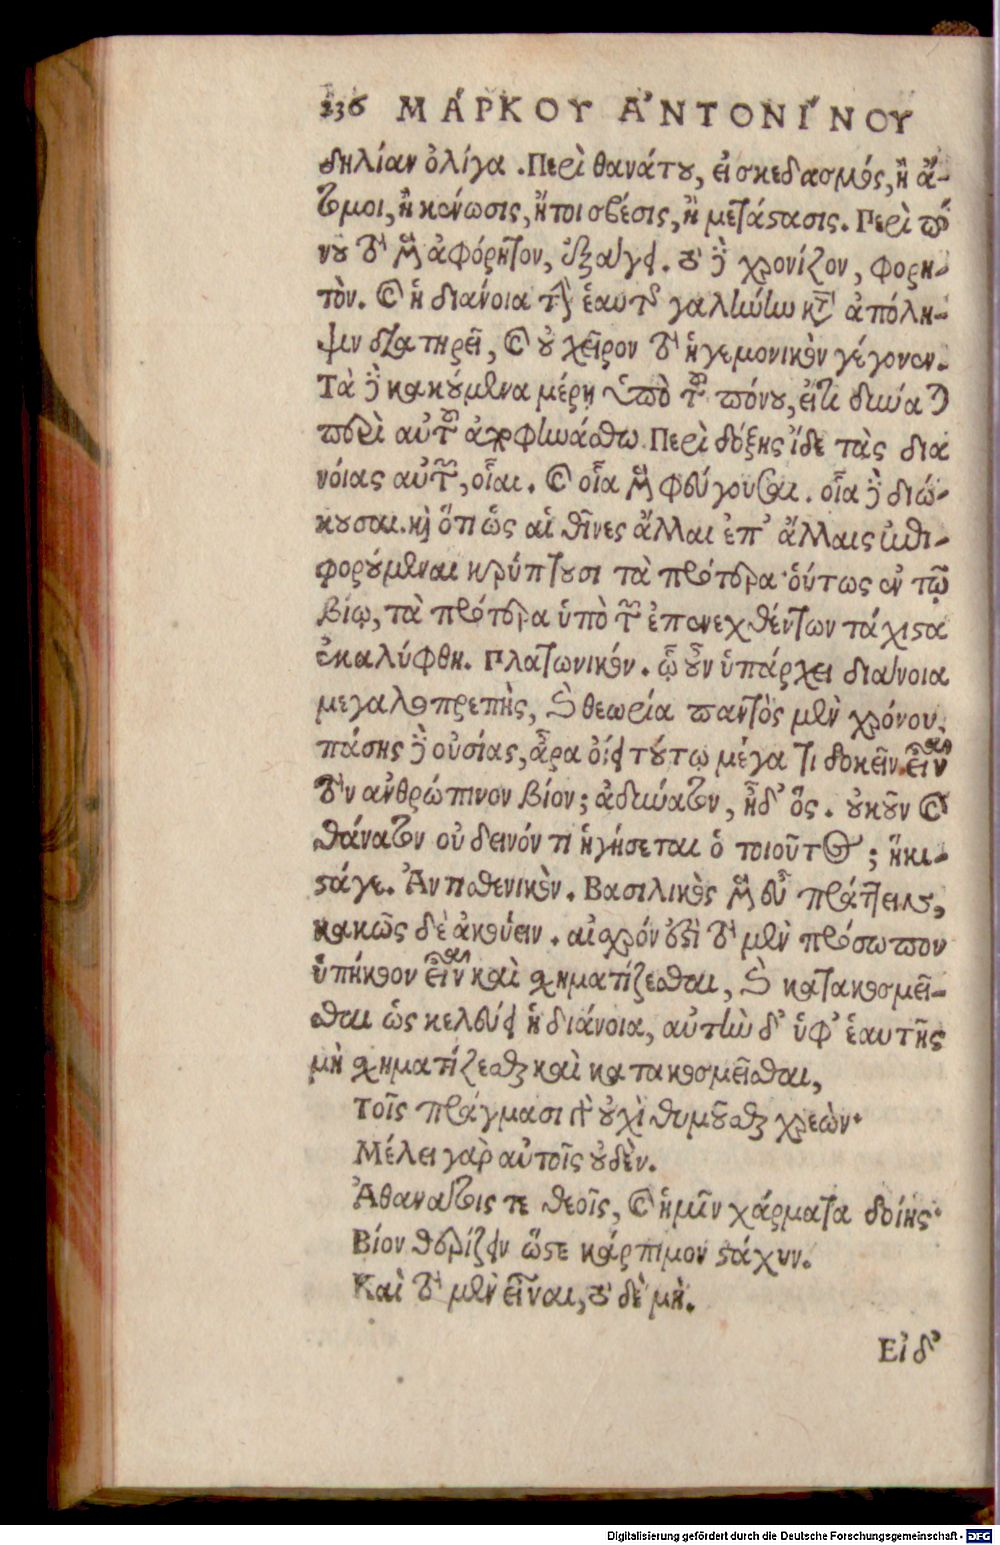 236 ΜΑ΄ΡΚΟΥ Α᾿ΝΤΟΝΙ΄ΝΟΥ
δηλίαν ὀλίγα. Περὶ θανάτου, εἰ σκεδασμός, ἢ ἄ-
τομοι, ἢ κένωσις, ἤτοι σβέσις, ἢ μετάστασις. Περὶ πό
νου τὸ μὲν ἀφόρητον, ἐξάγει. τὸ δὲ χρονίζον, φορη-
τὸν. καὶ ἡ διάνοια τὴν ἑαυτῆς γαλήνην κατὰ ἀπόλη-
ψιν διατηρεῖ, καὶ οὐ χεῖρον τὸ ἡγεμονικὸν γέγονεν.
Τὰ δὲ κακούμενα μέρη ὑπὸ τοῦ πόνου, εἴτι δύναται
περὶ αὐτοῦ ἀποφηνάσθω. Περὶ δόξης ἴδε τὰς δια
νοίας αὐτῶν, οἷαι. καὶ οἷα μὲν φεύγουσαι. οἷα δὲ διώ-
κουσαι. καὶ ὅτι ὡς αἱ θῖνες ἄλλαι ἐπ᾽ ἄλλαις ἐπι-
φορούμεναι κρύπτουσι τὰ πρότερα· οὕτως ἐν τῷ
βίῳ, τὰ πρότερα ὑπὸ τῶν ἐπενεχθέντων τάχιστα
ἐκαλύφθη. Πλατωνικόν. ᾧ οὖν ὑπάρχει διάνοια
μεγαλοπρεπὴς, καὶ θεωρία παντὸς μὲν χρόνου,
πάσης δὲ οὐσίας, ἆρα οἴει τούτῳ μέγα τι δοκεῖν εἶναι
τὸν ἀνθρώπινον βίον; ἀδύνατον, ἦδ᾽ ὅς. οὐκοῦν καὶ
θάνατον οὐ δεινόν τι ἡγήσεται ὁ τοιοῦτος; ἥκι-
στάγε. Ἀντισθενικὸν. Βασιλικὸς μὲν εὖ πράττειν,
κακῶς δὲ ἀκούειν. αἰσχρόν ἐστι τὸ μὲν πρόσωπον
ὑπήκοον εἶναι καὶ σχηματίζεσθαι, καὶ κατακοσμεῖ-
σθαι ὡς κελεύει ἡ διάνοια, αὐτὴν δ᾽ ὑφ᾽ ἑαυτῆς
μὴ σχηματίζεσθαι καὶ κατακοσμεῖσθαι,
Τοῖς πράγμασι γὰρ οὐχὶ θυμοῦσθαι χρεών·
Μέλει γὰρ αὐτοῖς οὐδὲν.
Ἀθανάτοις τε θεοῖς, καὶ ἡμῖν χάρματα δοίης·
Βίον θερίζειν ὥστε κάρπιμον στάχυν.
Καὶ τὸ μὲν εἶναι, τὸ δὲ μὴ.
Εἰ δ᾽
Digitalisierung gefördert durch die Deutsche Forschungsgemeinschaft - DFG